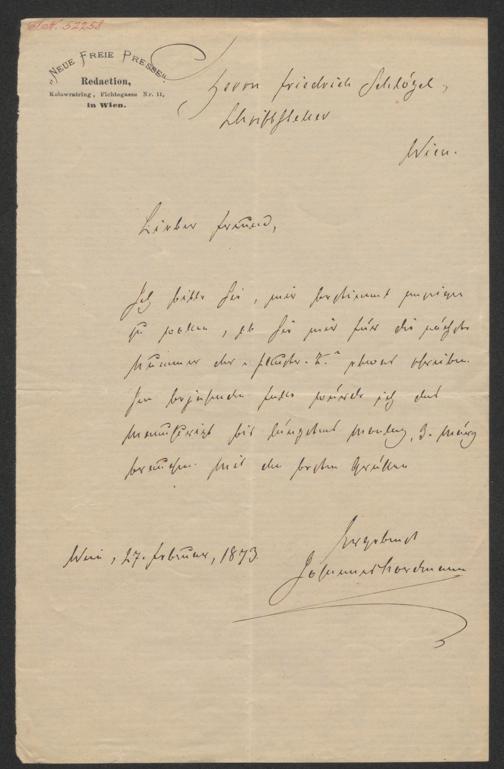 52258
"NEUE FREIE PRESSE".
Redaction,
Kolowratring, Fichtegasse Nr. 11,
in Wien.
Herrn Friedrich Schlögel,
Schriftsteller
Wien.
Lieber Freund,
Ich bitte Sie, mir bestimmt
zu wollen, ob Sie mir für die nächste
Nummer der etwas schreiben.
Im bejahenden Falle würde ich das
Manuscript bis längstens Montag, 3. März
brauchen. Mit den besten Grüßen
Ergebenst
Johannes Nordmann
Wien, 27. Februar, 1873.